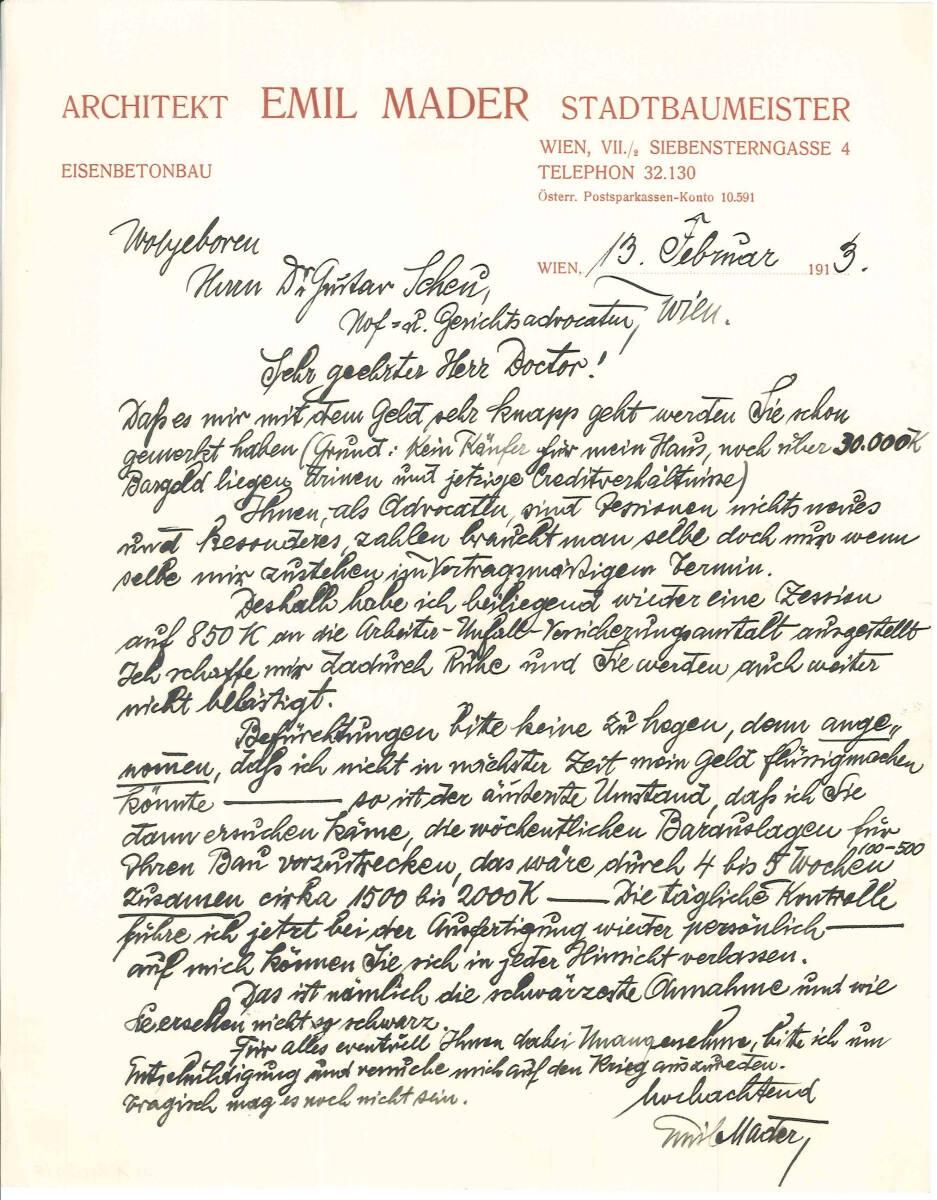 ARCHITEKT EMIL MADER STADTBAUMEISTER
WIEN, VII./2 SIEBENSTERNGASSE 4
EISENBETONBAU
TELEPHON 32.130
Österr. Postsparkassen-Konto 10.591
Wolgeboren
WIEN, 13. Februar 1913.
Herrn Dr Gustav Scheu,
Hof- u. Gerichtsadvocaten, Wien.
Sehr geehrter Herr Doctor!
Daß es mir mit dem Geld sehr knapp geht werden Sie schon
gemerkt haben (Grund: Kein Käufer für mein Haus, noch über 30.000K
Bargeld liegen drinen und jetzige Creditverhältnisse)
Ihnen, als Advocaten, sind Zessionen nichts neues
und besonderes, zahlen braucht man selbe doch nur wenn
selbe mir zustehen im Vertragsmäßigem Termin.
Deshalb habe ich beiliegend wieder eine Zession
auf 850 K an die Arbeiter-Unfall-Versicherungsanstalt ausgestellt
Ich schaffe mir dadurch Ruhe und Sie werden auch weiter
nicht belästigt.
Befürchtungen bitte keine zu hegen, denn ange-
nomen, daß ich nicht in nächster Zeit mein Geld flüssigmachen
könnte — so ist der äußerste Umstand, daß ich Sie
dann ersuchen käme, die wöchentlichen Barauslagen für
Ihren Bau vorzustrecken, das wäre durch 4 bis 5 Wochen 400-500
zusamen cirka 1500 bis 2000K — Die tägliche Kontrolle
führe ich jetzt bei der Ausfertigung wieder persönlich —
auf mich können Sie sich in jeder Hinsicht verlassen.
Das ist nämlich die schwärzeste Annahme und wie
Sie ersehen nicht so schwarz.
Für alles eventuell Ihnen dabei Unangenehme, bitte ich um
Entschuldigung und versuche mich auf den Krieg auszureden.
Tragisch mag es noch nicht sein.
hochachtend
Emil Mader